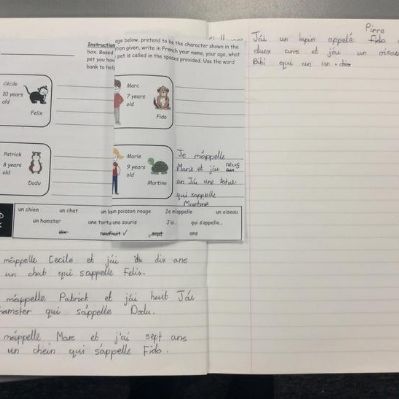 Instruction
age below, pretend to be the character shown in the
box. Based
ion given, write in French your name, your age, what
pet you ha
pet is called in the spaces provided. Use the word
bank to hel
Cécile
10 years
old
Felix
Marc
7 years
old
Fido
Patrick
8 years
old
Dodu
Marie
9 years
old
Martine
Je m'appelle
Marie et j'ai neuf
an J'ai une tortue
qui sappelle
Martine
un chien
un chat
un lapin
poisson rouge
Je m'appelle
un oiseau
un hamster
une tortue
une souris
J'ai..
qui s'appelle..
dix
neuf
huit
sept
ans
m'appelle Cecile et j'ai dix ans
un chat qui sappelle Felix.
m'appelle Patrick et j'ai huit J'ai
hamster qui s'appelle Dodu.
m'appelle Marc et j'ai sept ans
un chein qui s'appelle Fido.
Pirre
J'ai un lapin appelé Fido
deux ans et j'ai un oiseau
Bibi qui un un